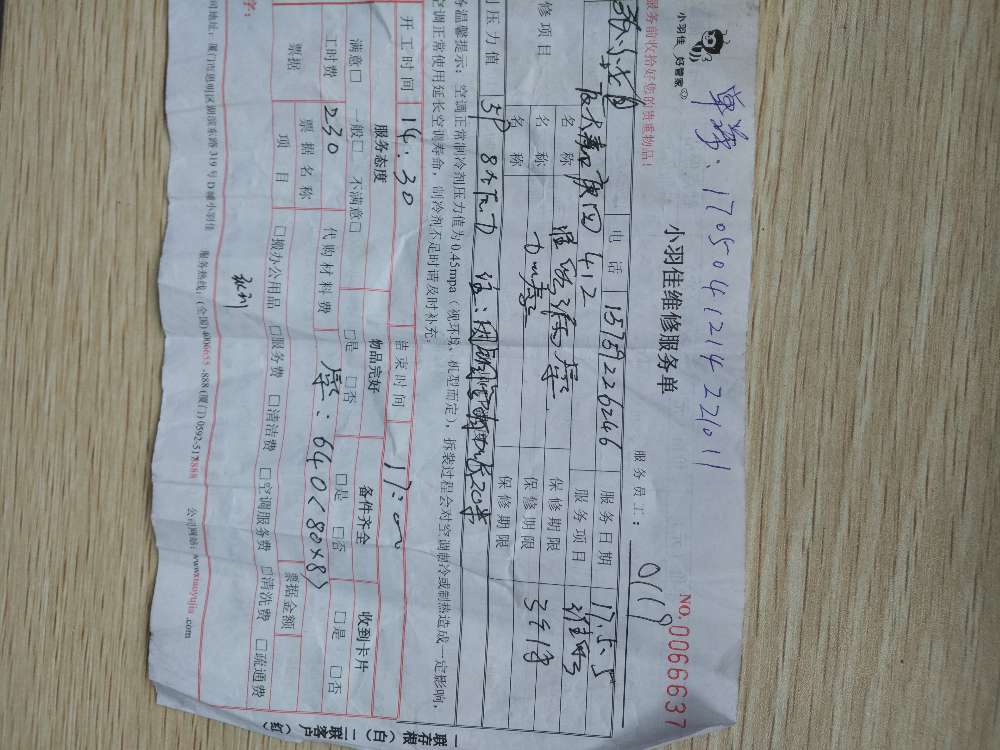 单号:17050412142 22011
小羽佳 好管家
小羽佳维修服务单
服务员工: 0119
NO.0066637
服务前收拾好您的贵重物品!
电话 15759226246 服务日期 17.5.5
412 服务项目 维修
修项目 名称 保修期限
名称 保修期限 3个月
名称 保修期限
压力值 3P 8个压力 注:
温馨提示:空调正常制冷剂压力值为0.45mpa(视环境、机型而定),拆装过程会对空调制冷或制热造成一定影响,
空调正常使用延长空调寿命,制冷剂不足时请及时补充。
开工时间 14:30 结束时间 17:00
服务态度 物品完好 备件齐全 收到卡片
满意□ 一般□ 不满意□ □是 □否 □是 □否 □是 □否
工时费 230 代购材料费 :640(80×8)
票据 票据名称 票据金额
项目 □搬办公用品 □服务费 □清洁费 □空调服务费 □清洗费 □疏通费
字:
司地址:厦门市思明区湖滨东路319号D幢小羽佳 服务热线:(全国)4006655-888(厦门)0592-5188888 公司网站:www.xiaoyujia.com
一联存根(白) 二联客户(红)